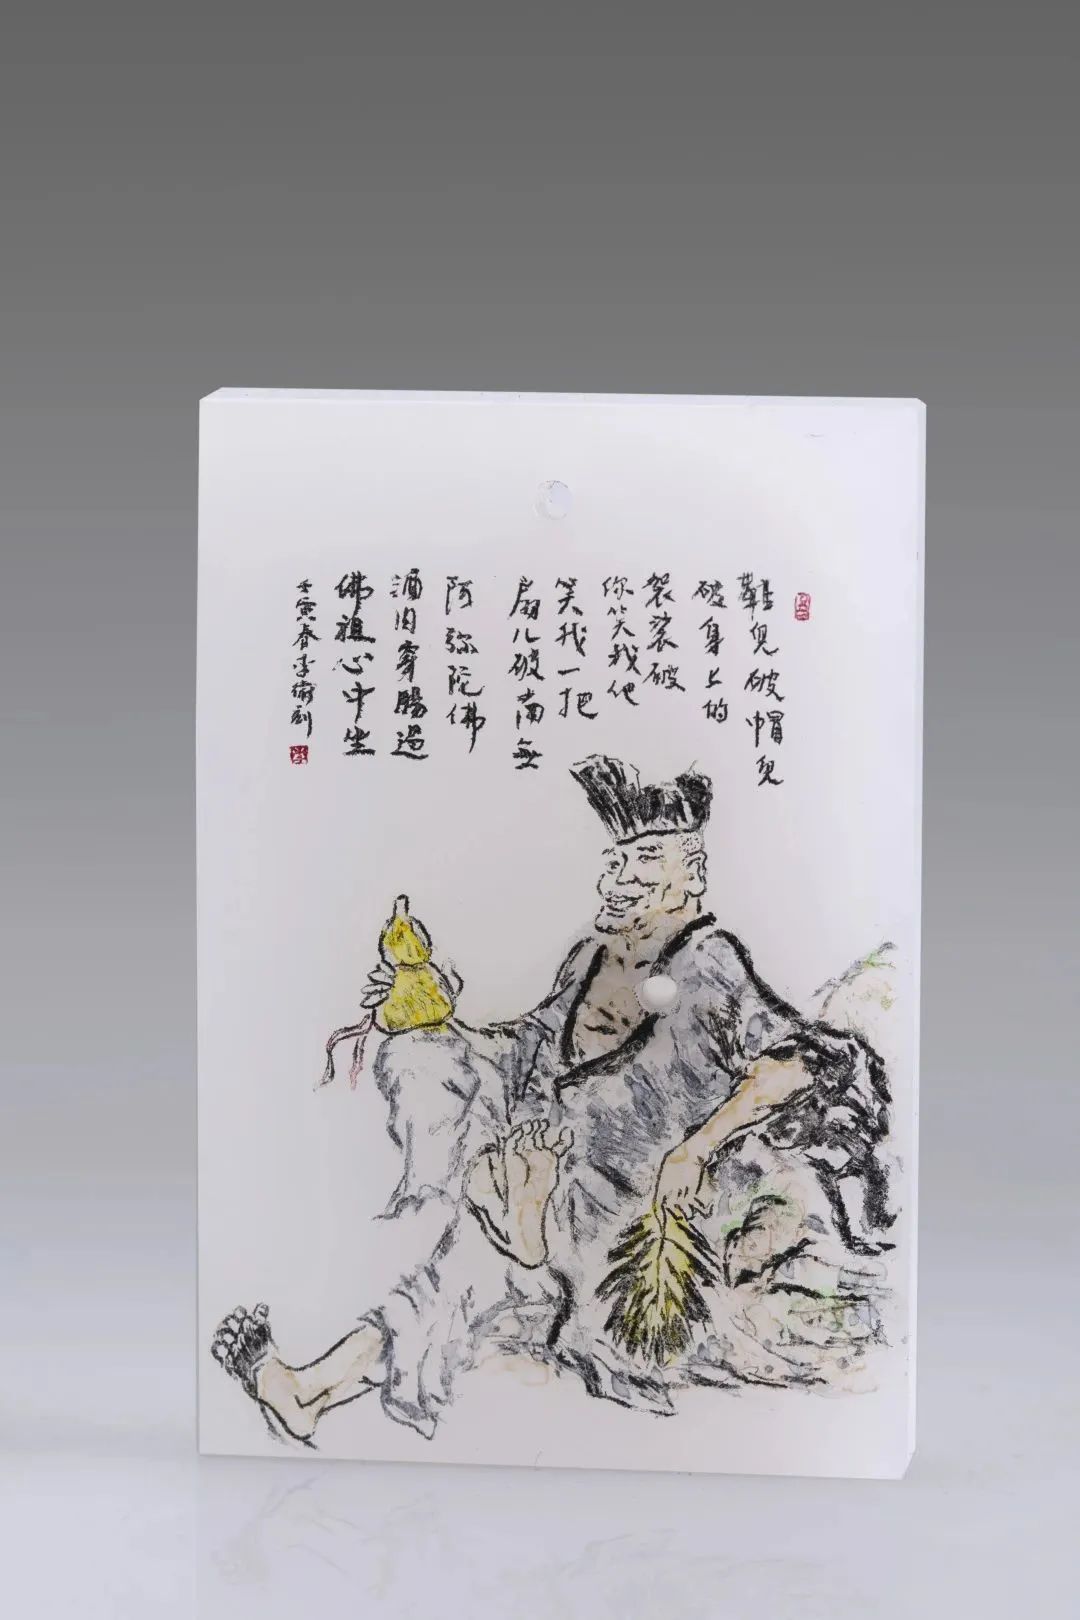 鞋兒破帽兒
破身上的
袈裟破
你笑我他
笑我一把
扇儿破南無
阿弥陀佛
酒肉穿腸過
佛祖心中坐
壬寅春李衛刻